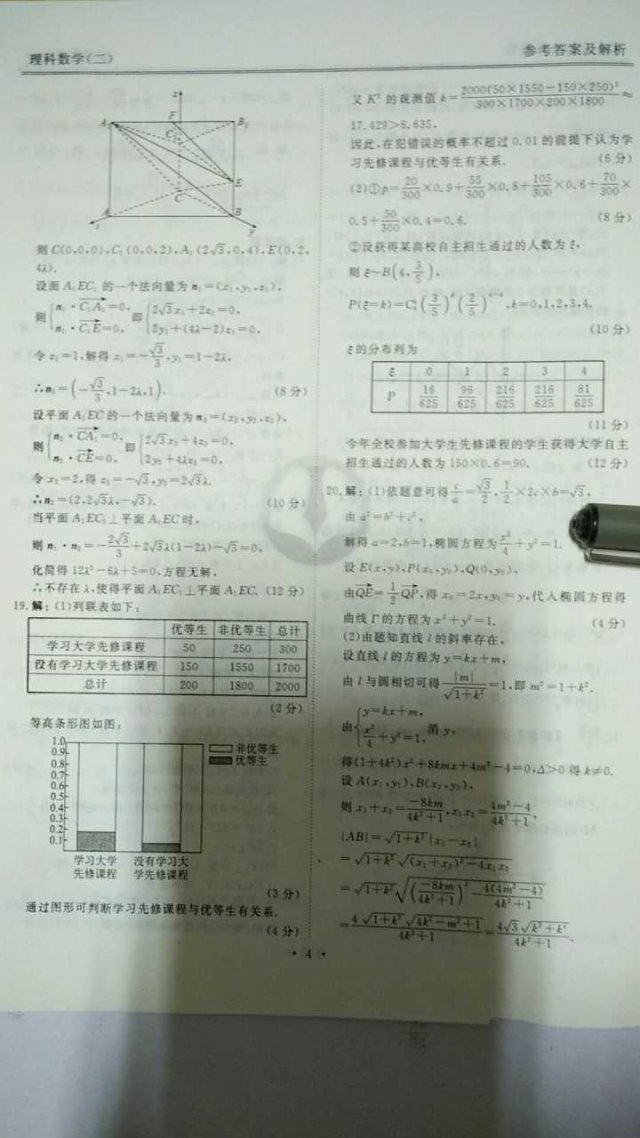 理科数学(二)
参考答案及解析
z
A₁
F
B₁
C₁
E
C
A
B
x
y
则 C(0,0,0),C₁(0,0,2),A₁(2√3,0,4),E(0,2,
4λ).
设面 A₁EC₁ 的一个法向量为 n₁=(x₁,y₁,z₁),
则{n₁·C₁A₁=0, n₁·C₁E=0, 即{2√3x₁+2z₁=0, 2y₁+(4λ-2)z₁=0,
令 z₁=1,解得 x₁=-√3/3,y₁=1-2λ,
∴n₁=(-√3/3,1-2λ,1). (8分)
设平面 A₁EC 的一个法向量为 n₂=(x₂,y₂,z₂),
则{n₂·CA₁=0, n₂·CE=0, 即{2√3x₂+4z₂=0, 2y₂+4λz₂=0,
令 x₂=2,得 z₂=-√3,y₂=2√3λ,
∴n₂=(2,2√3λ,-√3). (10分)
当平面 A₁EC₁⊥平面 A₁EC 时,
则 n₁·n₂=-2√3/3+2√3λ(1-2λ)-√3=0,
化简得 12λ²-6λ+5=0,方程无解,
∴不存在 λ,使得平面 A₁EC₁⊥平面 A₁EC. (12分)
19.解:(1)列联表如下:
优等生 非优等生 总计
学习大学先修课程 50 250 300
没有学习大学先修课程 150 1550 1700
总计 200 1800 2000
(2分)
等高条形图如图:
1.0
0.9
0.8
0.7
0.6
0.5
0.4
0.3
0.2
0.1
非优等生
优等生
学习大学 没有学习大
先修课程 学先修课程
(3分)
通过图形可判断学习先修课程与优等生有关系.
(4分)
又 K² 的观测值 k=2000(50×1550-150×250)²/300×1700×200×1800≈
17.429>6.635,
因此,在犯错误的概率不超过 0.01 的前提下认为学
习先修课程与优等生有关系. (6分)
(2)①p=20/300×0.9+55/300×0.8+105/300×0.6+70/300×
0.5+50/300×0.4=0.6. (8分)
②设获得某高校自主招生通过的人数为 ξ,
则 ξ~B(4,3/5),
P(ξ=k)=C₄ᵏ(3/5)ᵏ(2/5)⁴⁻ᵏ,k=0,1,2,3,4,
(10分)
ξ 的分布列为
ξ 0 1 2 3 4
P 16/625 96/625 216/625 216/625 81/625
(11分)
今年全校参加大学生先修课程的学生获得大学自主
招生通过的人数为 150×0.6=90. (12分)
20.解:(1)依题意可得 c/a=√3/2,1/2×2c×b=√3,
由 a²=b²+c²,
解得 a=2,b=1,椭圆方程为 x²/4+y²=1.
设 E(x,y),P(x₀,y₀),Q(0,y₀),
由QE=1/2QP,得 x₀=2x,y₀=y,代入椭圆方程得
曲线 Γ 的方程为 x²+y²=1. (4分)
(2)由题知直线 l 的斜率存在,
设直线 l 的方程为 y=kx+m,
由 l 与圆相切可得 |m|/√(1+k²)=1,即 m²=1+k².
由{y=kx+m, x²/4+y²=1, 消 y,
得(1+4k²)x²+8kmx+4m²-4=0,Δ>0 得 k≠0.
设 A(x₁,y₁),B(x₂,y₂),
则 x₁+x₂=-8km/4k²+1,x₁x₂=4m²-4/4k²+1,
|AB|=√(1+k²)|x₁-x₂|
=√(1+k²)√((x₁+x₂)²-4x₁x₂)
=√(1+k²)√((-8km/4k²+1)²-4(4m²-4)/4k²+1)
=4√(1+k²)√(4k²-m²+1)/4k²+1=4√3√(k²+k⁴)/4k²+1.
· 4 ·